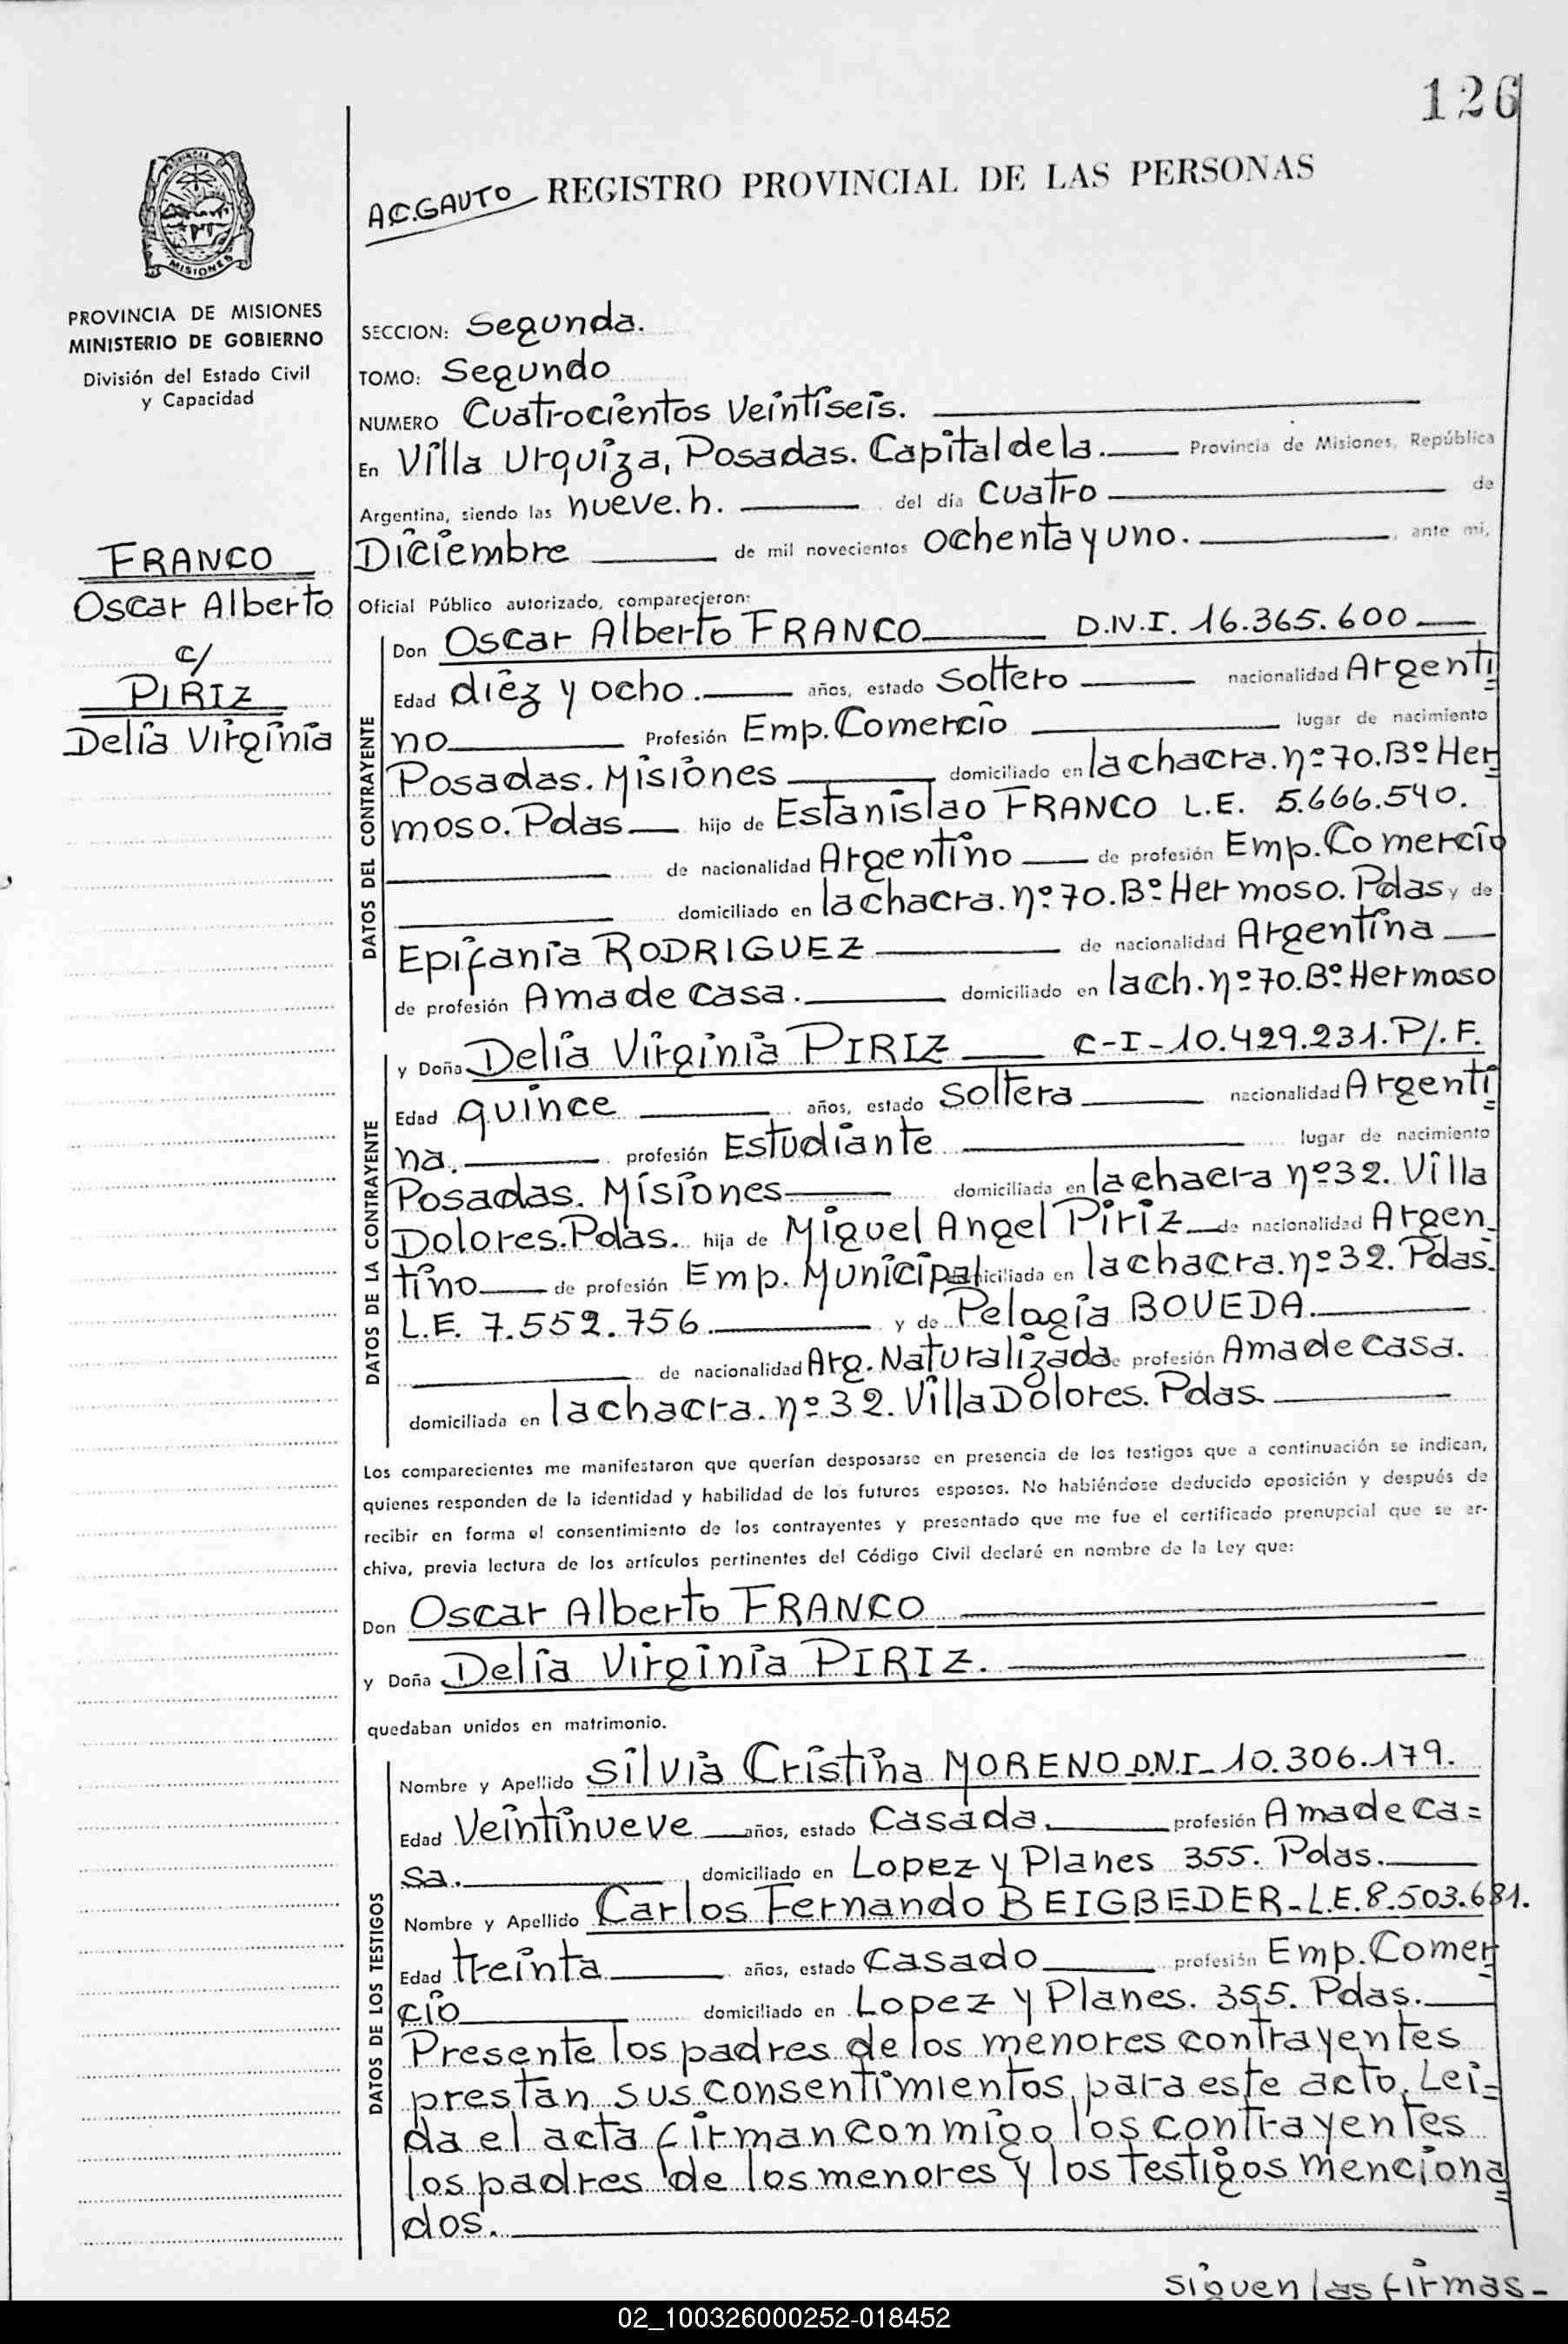 126
A.C. GAUTO REGISTRO PROVINCIAL DE LAS PERSONAS
MISIONES
PROVINCIA DE MISIONES
MINISTERIO DE GOBIERNO
División del Estado Civil
y Capacidad
FRANCO
Oscar Alberto
c/
PIRIZ
Delia Virginia
SECCION: Segunda.
TOMO: Segundo
NUMERO Cuatrocientos Veintiseis.
En Villa Urquiza, Posadas. Capital de la. Provincia de Misiones, República
Argentina, siendo las nueve. h. del día Cuatro de
Diciembre de mil novecientos ochenta y uno. , ante mi,
Oficial Público autorizado, comparecieron:
DATOS DEL CONTRAYENTE
Don Oscar Alberto FRANCO D.N.I. 16.365.600
Edad diez y ocho. años, estado Soltero nacionalidad Argenti
no Profesión Emp. Comercio lugar de nacimiento
Posadas. Misiones domiciliado en la chacra. nº 70. Bº Her
moso. Pdas hijo de Estanislao FRANCO L.E. 5.666.540.
de nacionalidad Argentino de profesión Emp. Comercio
domiciliado en la chacra. nº 70. Bº Hermoso. Pdas y de
Epifania RODRIGUEZ de nacionalidad Argentina
de profesión Ama de Casa. domiciliado en la ch. nº 70. Bº Hermoso
DATOS DE LA CONTRAYENTE
y Doña Delia Virginia PIRIZ C-I-10.429.231. P/. F.
Edad quince años, estado Soltera nacionalidad Argenti
na. profesión Estudiante lugar de nacimiento
Posadas. Misiones domiciliada en la chacra nº 32. Villa
Dolores. Pdas. hija de Miguel Angel Piriz de nacionalidad Argen
tino de profesión Emp. Municipal domiciliada en la chacra. nº 32. Pdas.
L.E. 7.552.756 y de Pelagia BOVEDA.
de nacionalidad Arg. Naturalizada de profesión Ama de Casa.
domiciliada en la chacra. nº 32. Villa Dolores. Pdas.
Los comparecientes me manifestaron que querían desposarse en presencia de los testigos que a continuación se indican,
quienes responden de la identidad y habilidad de los futuros esposos. No habiéndose deducido oposición y después de
recibir en forma el consentimiento de los contrayentes y presentado que me fue el certificado prenupcial que se ar-
chiva, previa lectura de los artículos pertinentes del Código Civil declaré en nombre de la Ley que:
Don Oscar Alberto FRANCO
y Doña Delia Virginia PIRIZ.
quedaban unidos en matrimonio.
DATOS DE LOS TESTIGOS
Nombre y Apellido Silvia Cristina MORENO D.N.I-10.306.179.
Edad Veintinueve años, estado Casada. profesión Ama de Ca=
sa. domiciliado en Lopez y Planes 355. Pdas.
Nombre y Apellido Carlos Fernando BEIGBEDER-L.E. 8.503.681.
Edad treinta años, estado Casado profesión Emp. Comer
cio domiciliado en Lopez y Planes. 355. Pdas.
Presente los padres de los menores contrayentes
prestan sus consentimientos para este acto. Lei=
da el acta firman conmigo los contrayentes
los padres de los menores y los testigos menciona
dos.
siguen las firmas-
02_100326000252-018452